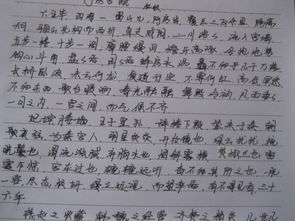 阿房宫赋
杜牧
六王毕,四海一,蜀山兀,阿房出。覆压三百余里,隔离
天日。骊山北构而西折,直走咸阳。二川溶溶,流入宫墙。
五步一楼,十步一阁;廊腰缦回,檐牙高啄;各抱地势,
钩心斗角。盘盘焉,囷囷焉,蜂房水涡,矗不知乎几千万落。
长桥卧波,未云何龙?复道行空,不霁何虹?高低冥迷,
不知西东。歌台暖响,春光融融;舞殿冷袖,风雨凄凄。
一日之内,一宫之间,而气候不齐。
妃嫔媵嫱,王子皇孙,辞楼下殿,辇来于秦。朝
歌夜弦,为秦宫人。明星荧荧,开妆镜也;绿云扰扰,梳
晓鬟也;渭流涨腻,弃脂水也;烟斜雾横,焚椒兰也。雷
霆乍惊,宫车过也;辘辘远听,杳不知其所之也。一肌一
容,尽态极妍,缦立远视,而望幸焉。有不见者,三十
六年。
燕赵之收藏,韩魏之经营,齐楚之精英,几世几